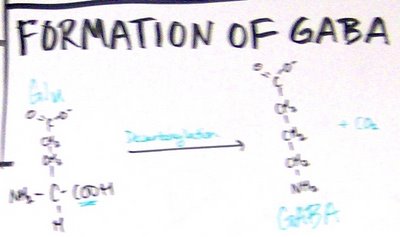 FORMATION OF GABA
Glu
O⁻ O⁻
C
CH₂
CH₂
NH₂ - C - COOH
H
Decarboxylation
O⁻ O⁻
C
CH₂
CH₂
CH₂
NH₂
+ CO₂
GABA